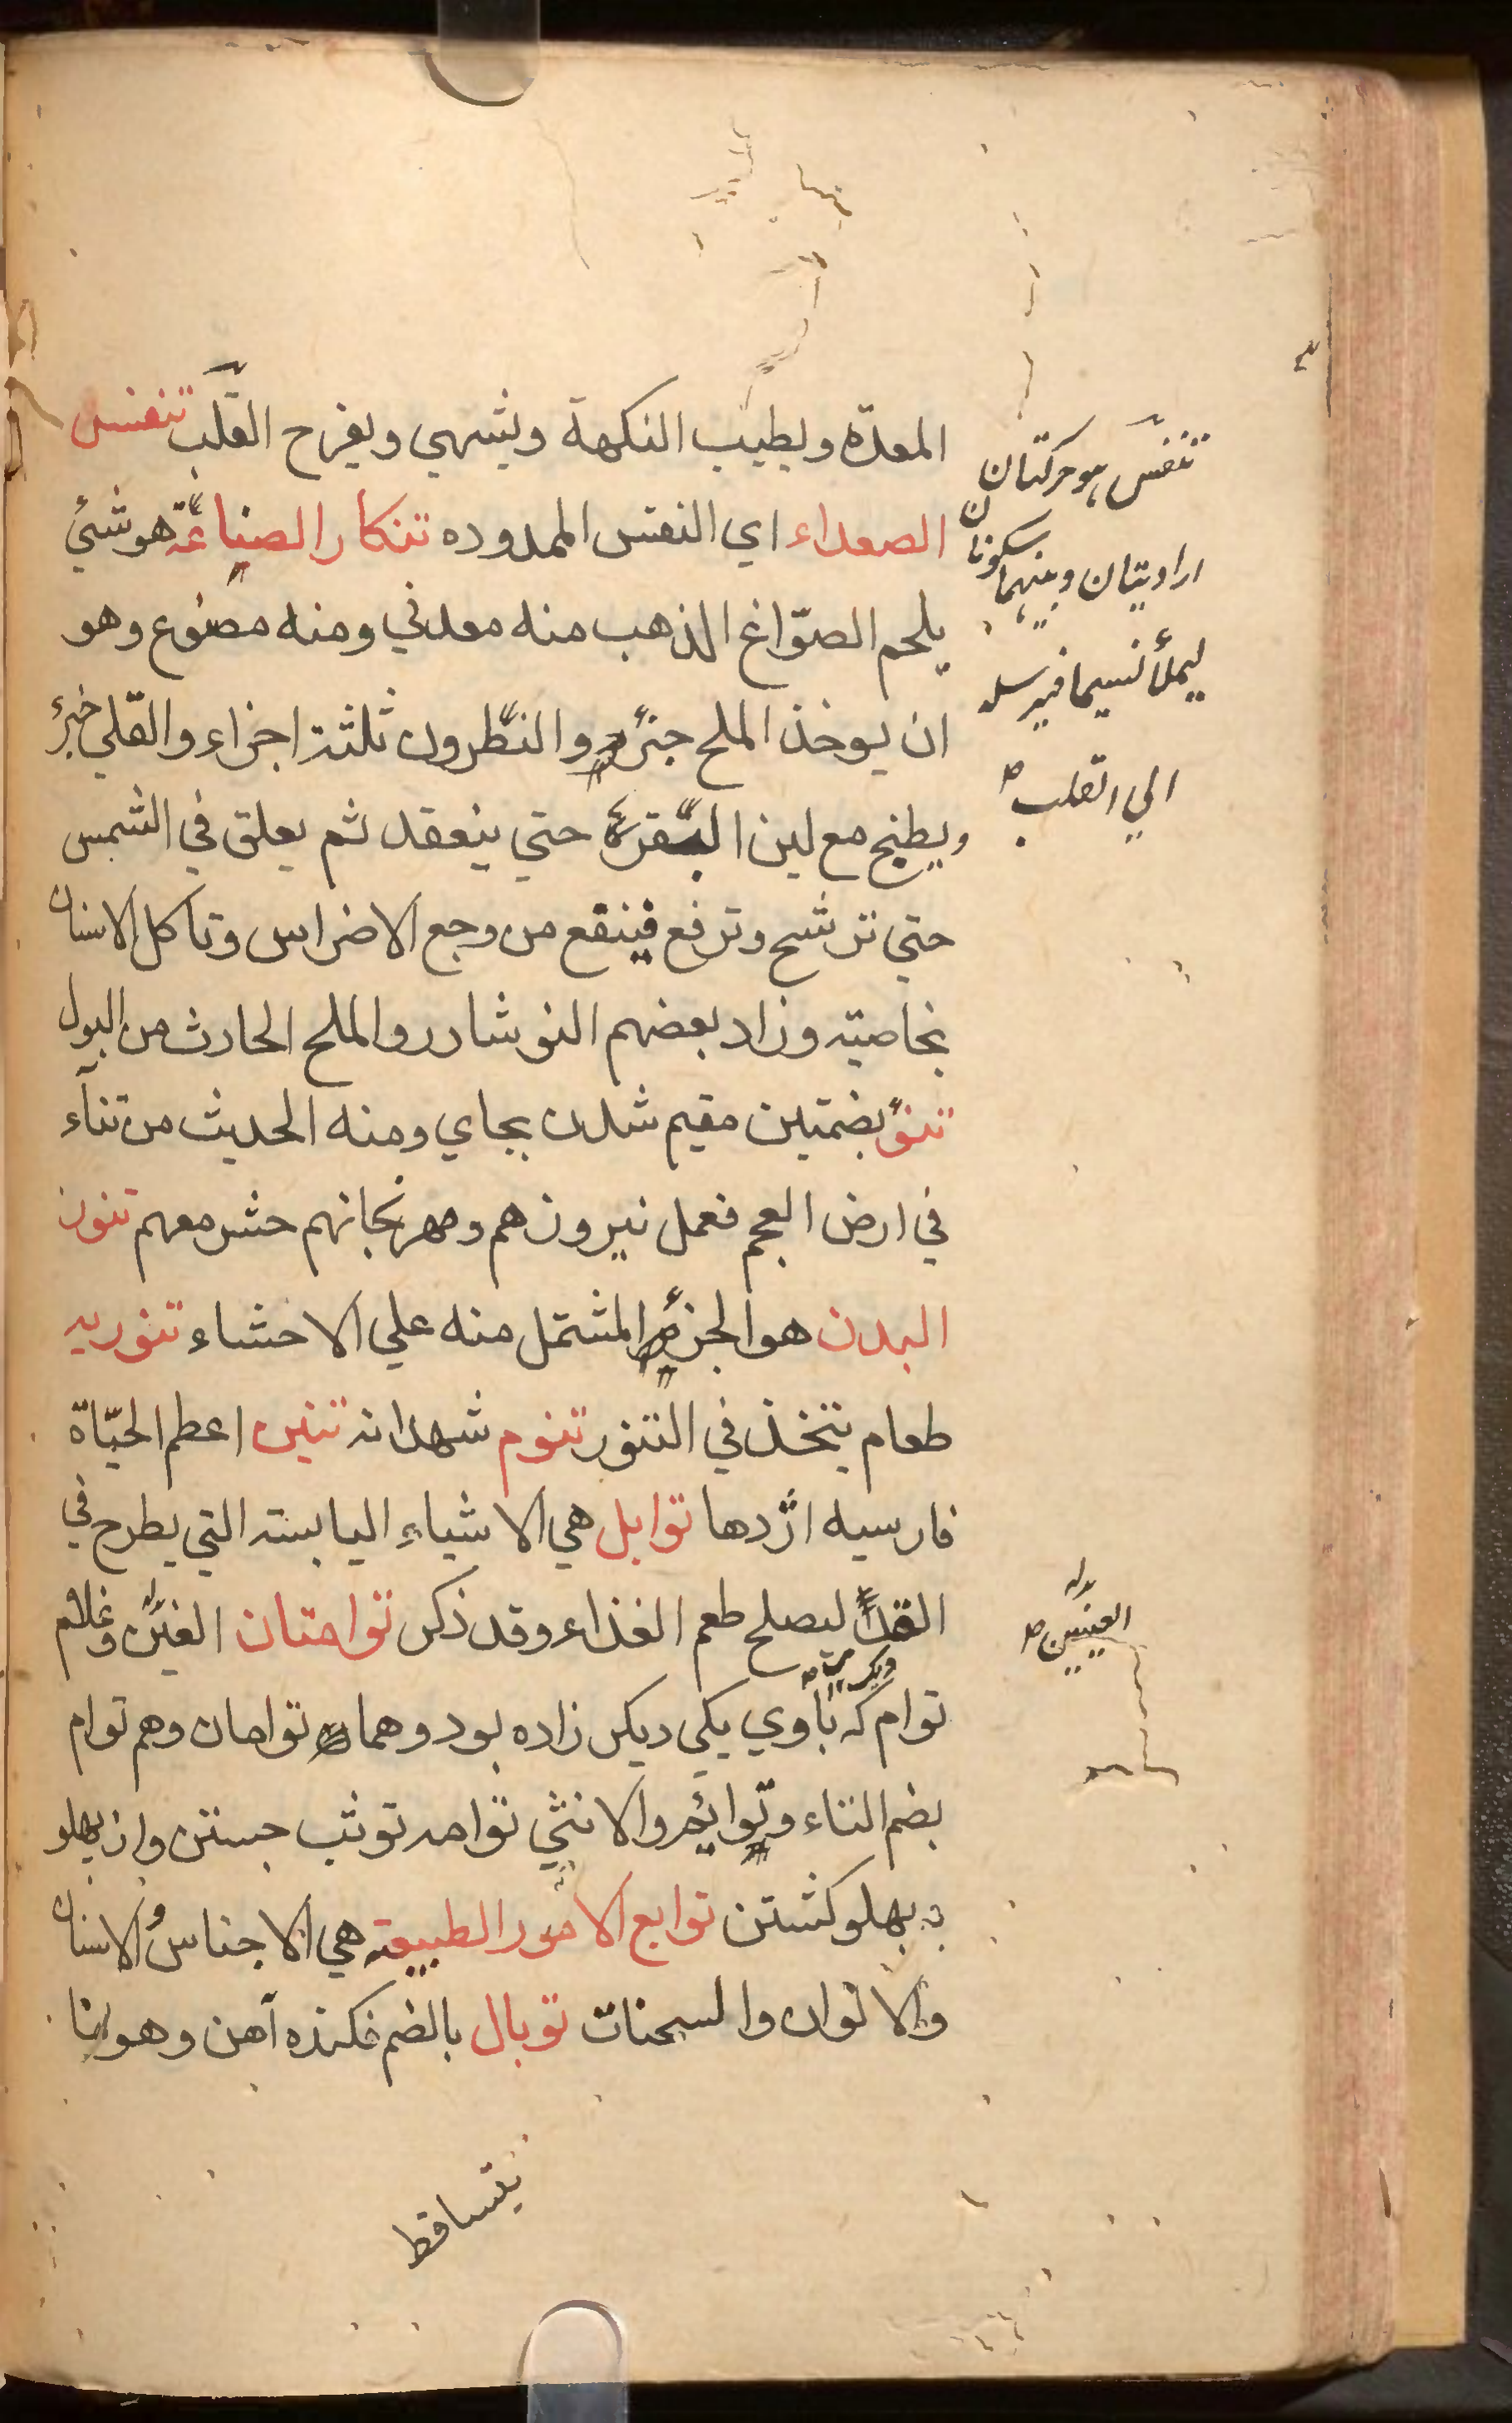 المعدة ويطيب النكهة ويشهي ويفرح القلب تنفس
الصعداء اي النفس الممدوده تنكار الصناعة هو شئ
يلحم الصوّاغ الذهب منه معدني ومنه مصنوع وهو
ان يوخذ الملح جزؤ والنطرون ثلثة اجزاء والقلي جزؤ
ويطبخ مع لبن البقرة حتي ينعقد ثم يعلق في الشمس
حتي ترشح وترفع فينفع من وجع الاضراس وتاكل الاسنان
بخاصيته وزاد بعضهم النوشادر والملح الحارث من البول
تنؤ بضمتين مقيم شدن بجاي ومنه الحديث من تناء
في ارض العجم فعمل نيروزهم ومهرنجانهم حشر معهم تنور
البدن هو الجزؤ المشتمل منه علي الاحشاء تنوريه
طعام يتخذ في التنور تنوم شهدانه تنين اعظم الحيّاة
فارسيه اژدها توابل هي الاشياء اليابسة التي يطرح في
القدر ليصلح طعم الغذاء وقد ذكر توامتان العين وغلام
توام كه باوي يكي ديكر زاده بود وهما توامان وهم توام
بضم التاء وتوائم والانثي توامه توثب جستن واز پهلو
به پهلو كشتن توابع الامور الطبيعة هي الاجناس والاسنان
والالوان والسحنات توبال بالضم فكنده آهن وهو ما
يتساقط
تنفس هو حركتان
اراديتان وبينهما سكونان
ليملأ نسيما فيرسله
الي القلب
العينين